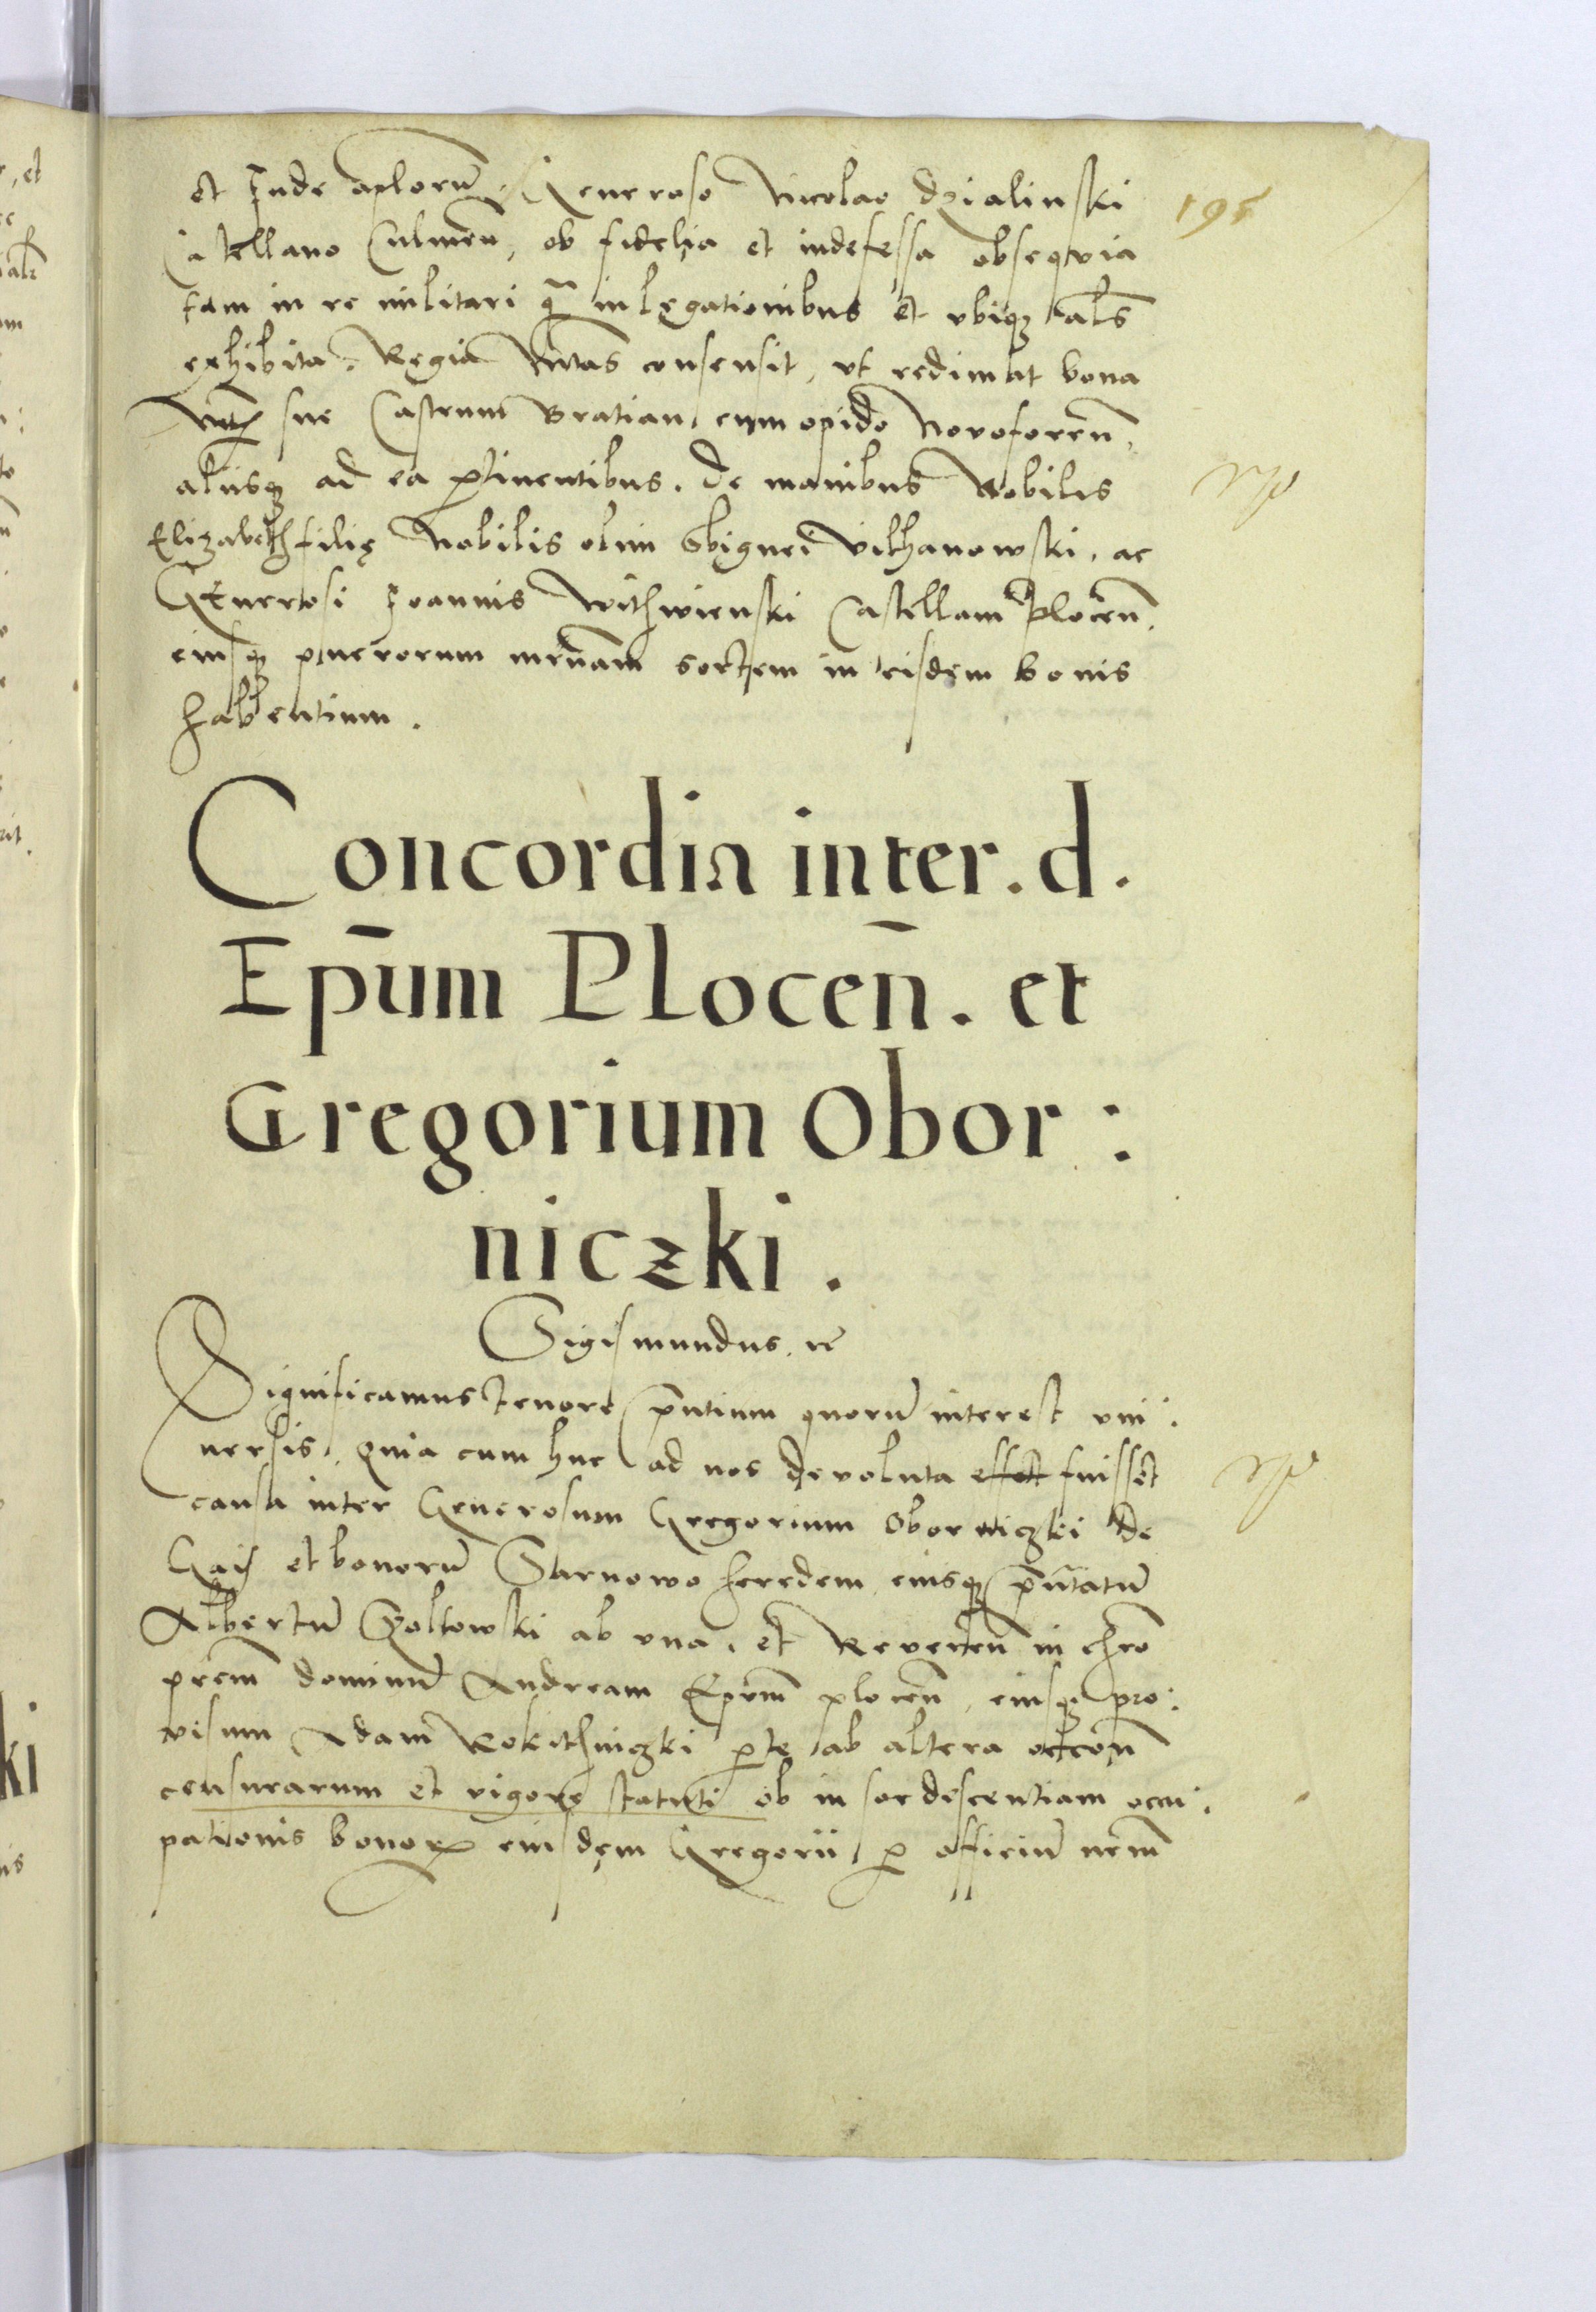 et Jude aplorũ. Generoso Nicolao Dzialinski
195
Catellano Culmeñ, ob fidelia et indefessa obsequia
tam in re militari q̃ in legationibus et ubiq; als̃
exhibita. Regia Mtas consensit, ut redimat bona
sue Castrum Bratian cum opido Novoforeñ,
aliisq; ad ea ptinentibus. de manibus Nobilis
Elizabeth filię Nobilis olim Sbignei Vilkanowski, ac
Generosi Joannis Withwienski Castellani Ploceñ.
eiusq; puerorum sortem in eisdem bonis
habentium.
Concordia inter. d.
Ep̃um Ploceñ. et
Gregorium Obor:
niczki.
Sigismundus. rẽ
Significamus tenore p̃ntium quorũ interest uni:
uersis, quia cum huc ad nos devoluta esset fuisset
causa inter Generosum Gregorium Oborniczki de
Gaij et bonorũ Starnowo heredem eiusq;
Albertũ Czoltowski ab una, et Revereñ in chr̃o
pr̃em dominũ Andream Ep̃um ploceñ, eiusq; pro:
visum Adam Rokithniczki pte ab altera
censurarum et vigore statuti ob in sordescentiam occu:
pationis bonoꝝ eiusdem Gregorii p officiũ nr̃m